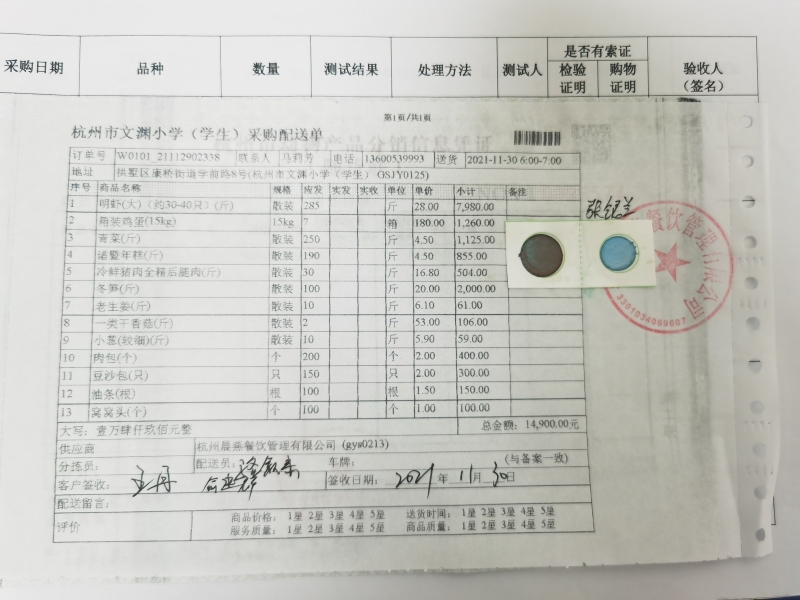 采购日期 品种 数量 测试结果 处理方法 测试人 是否有索证 检验证明 购物证明 验收人（签名）
第1页/共1页
杭州市文渊小学（学生）采购配送单
订单号 W0101_21112902338 联系人 马莉芳 电话 13600539993 送货 2021-11-30 6:00-7:00
地址 拱墅区康桥街道学前路8号(杭州市文渊小学（学生） GSJY0125)
序号 商品名称 规格 应发 实发 实收 单位 单价 小计 备注
1 明虾(大)（约30-40只）(斤) 散装 285 斤 28.00 7,980.00
2 箱装鸡蛋(15kg) 15kg 7 箱 180.00 1,260.00
3 青菜(斤) 散装 250 斤 4.50 1,125.00
4 诸暨年糕(斤) 散装 190 斤 4.50 855.00
5 冷鲜猪肉全精后腿肉(斤) 散装 30 斤 16.80 504.00
6 冬笋(斤) 散装 100 斤 20.00 2,000.00
7 老生姜(斤) 散装 10 斤 6.10 61.00
8 一类干香菇(斤) 散装 2 斤 53.00 106.00
9 小葱(较细)(斤) 散装 10 斤 5.90 59.00
10 肉包(个) 个 200 个 2.00 400.00
11 豆沙包(只) 只 150 只 2.00 300.00
12 油条(根) 根 100 根 1.50 150.00
13 窝窝头(个) 个 100 个 1.00 100.00
大写：壹万肆仟玖佰元整 总金额：14,900.00元
供应商 杭州晨燕餐饮管理有限公司 (gys0213)
分拣员： 配送员： 车牌： (与备案一致)
客户签收： 王丹 签收日期： 2021 年 11 月 30 日
配送留言：
评价 商品价格： 1星 2星 3星 4星 5星 送货时间： 1星 2星 3星 4星 5星
服务质量： 1星 2星 3星 4星 5星 商品质量： 1星 2星 3星 4星 5星
张银兰
餐饮管理有限公司
3301034069607